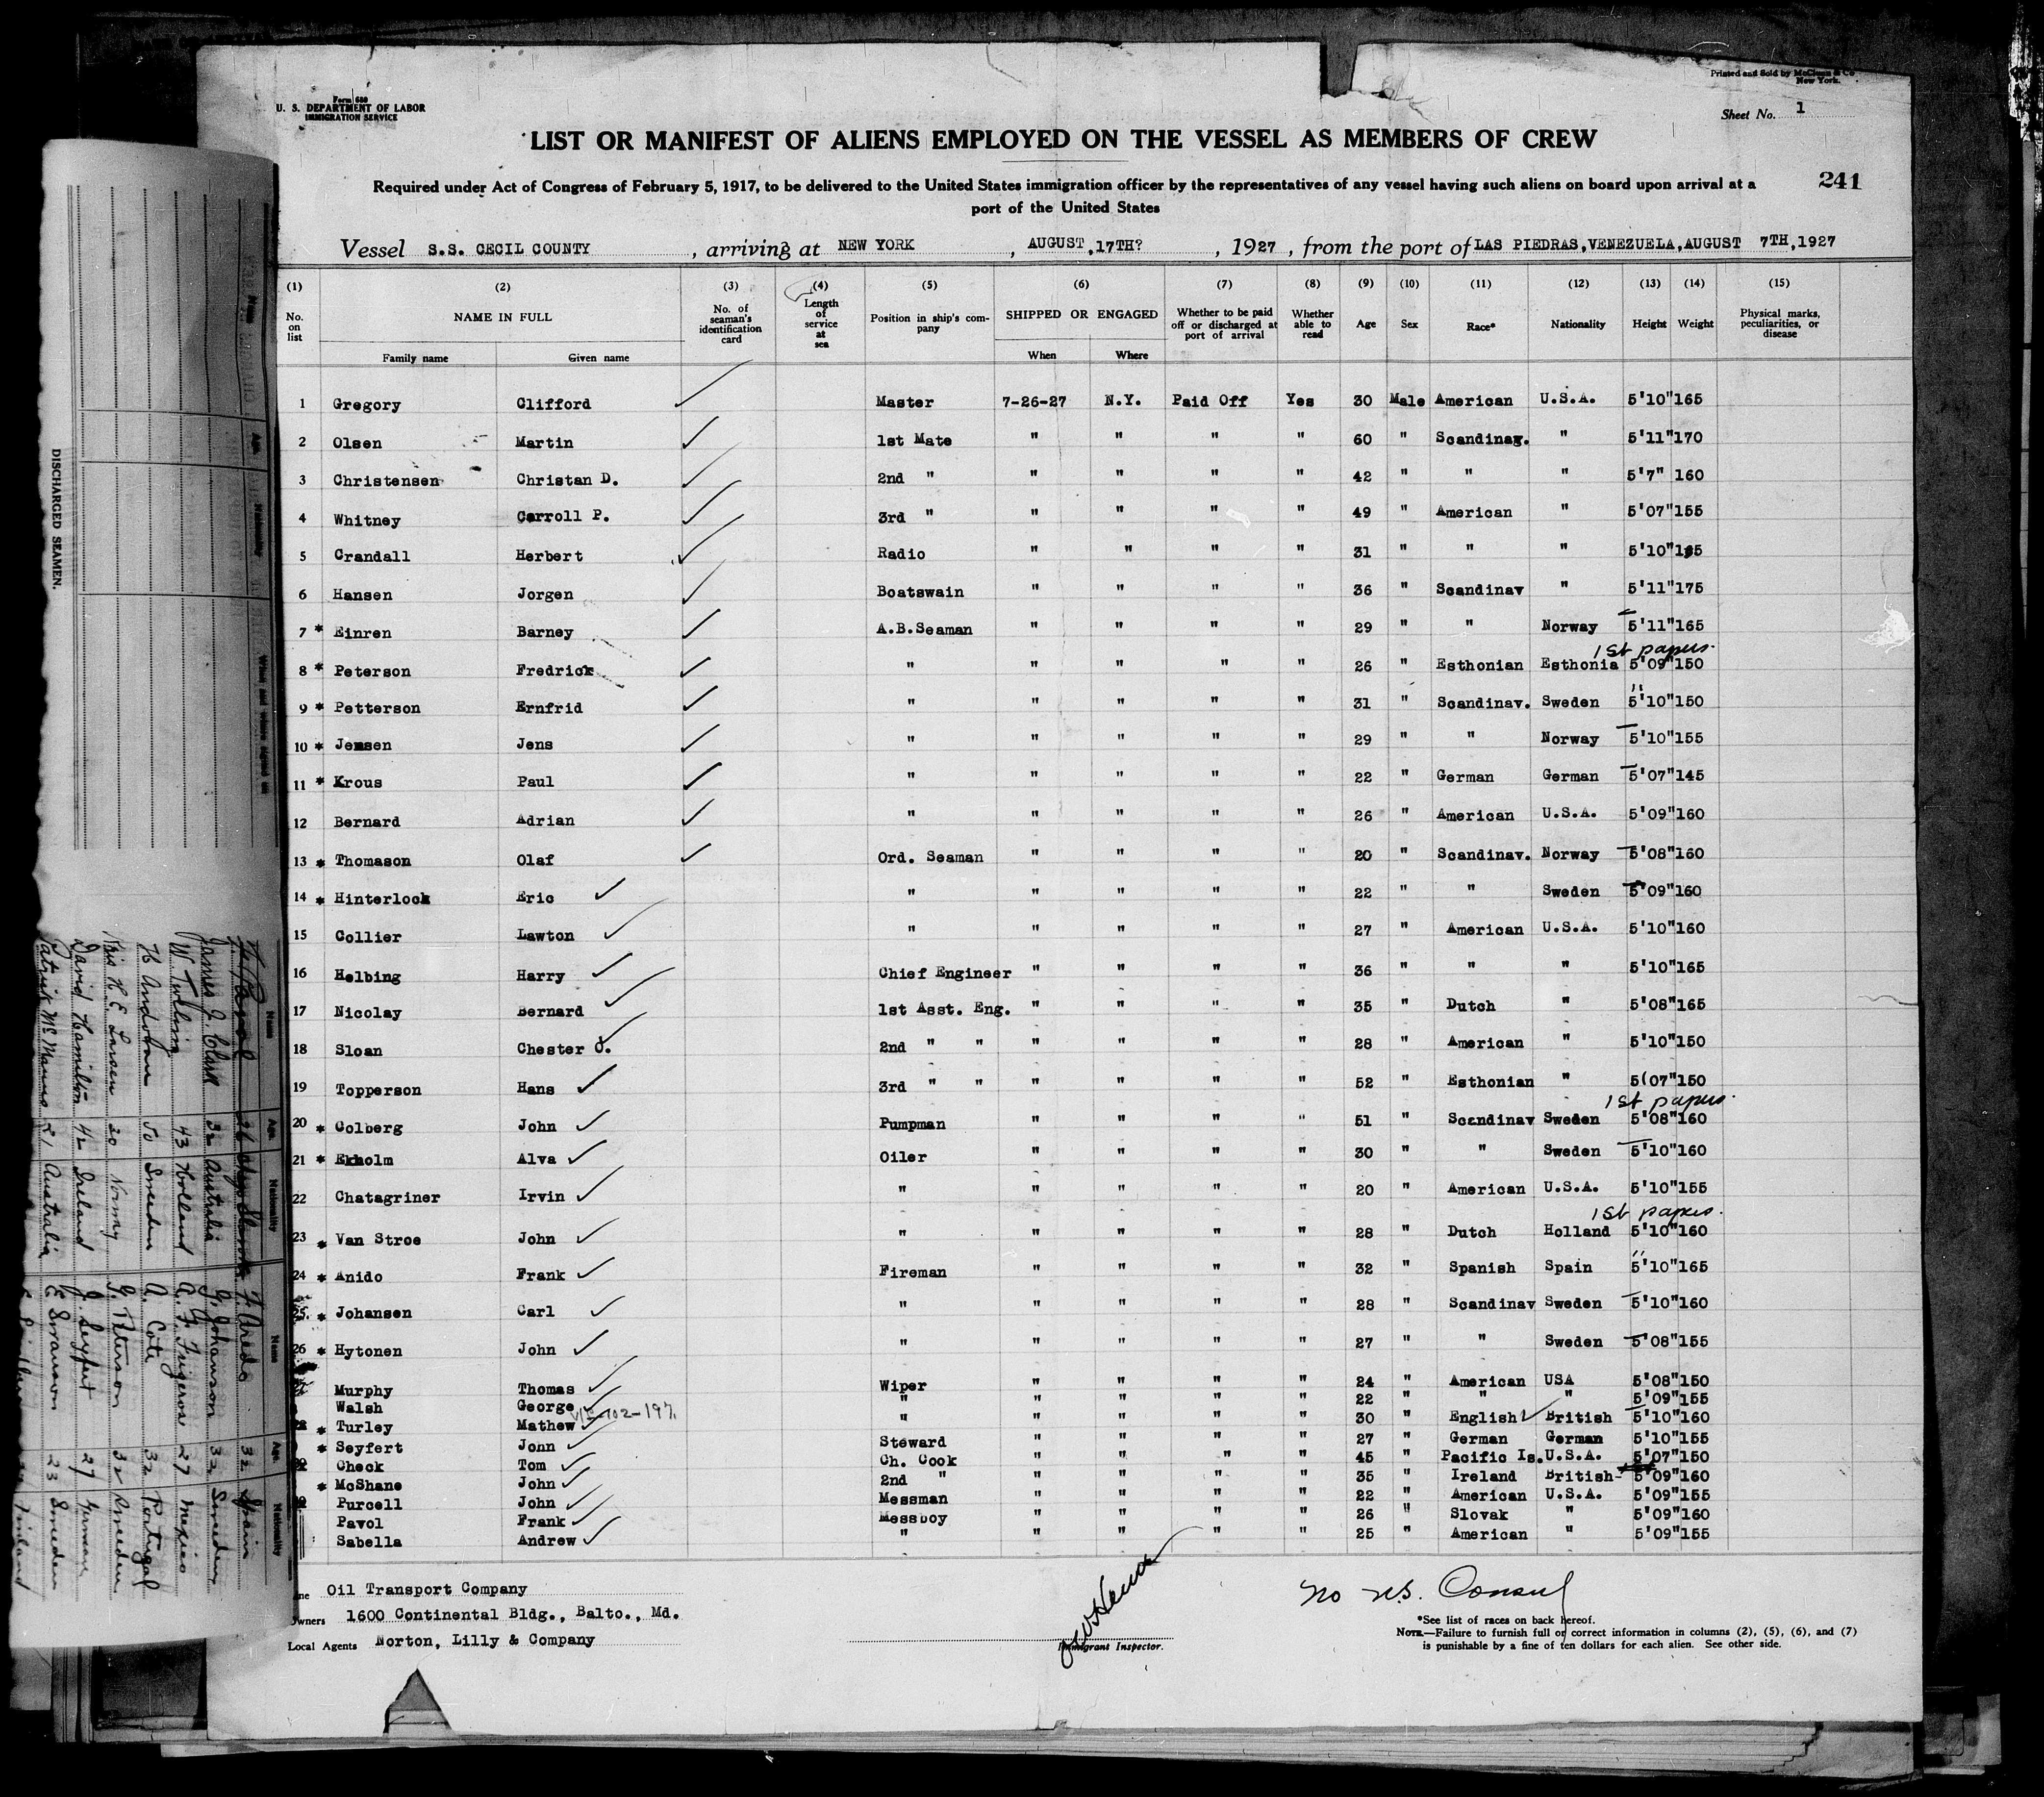 Form 680
U. S. DEPARTMENT OF LABOR
IMMIGRATION SERVICE
Printed and Sold by McClunn & Co
New York.
Sheet No. 1
LIST OR MANIFEST OF ALIENS EMPLOYED ON THE VESSEL AS MEMBERS OF CREW
Required under Act of Congress of February 5, 1917, to be delivered to the United States immigration officer by the representatives of any vessel having such aliens on board upon arrival at a
port of the United States
241
Vessel S.S. CECIL COUNTY, arriving at NEW YORK, AUGUST,17TH?, 1927, from the port of LAS PIEDRAS,VENEZUELA,AUGUST 7TH,1927
(1) (2) (3) (4) (5) (6) (7) (8) (9) (10) (11) (12) (13) (14) (15)
No. on list NAME IN FULL Family name Given name No. of seaman's identification card Length of service at sea Position in ship's company SHIPPED OR ENGAGED When Where Whether to be paid off or discharged at port of arrival Whether able to read Age Sex Race* Nationality Height Weight Physical marks, peculiarities, or disease
1 Gregory Clifford Master 7-26-27 N.Y. Paid Off Yes 30 Male American U.S.A. 5'10" 165
2 Olsen Martin 1st Mate " " " " 60 " Scandinav. " 5'11" 170
3 Christensen Christan D. 2nd " " " " " 42 " " " 5'7" 160
4 Whitney Carroll P. 3rd " " " " " 49 " American " 5'07" 155
5 Crandall Herbert Radio " " " " 31 " " " 5'10"
6 Hansen Jorgen Boatswain " " " " 36 " Scandinav " 5'11" 175
7 * Einren Barney A.B.Seaman " " " " 29 " " Norway 5'11" 165
1st papers.
8 * Peterson Fredrick " " " " " 26 " Esthonian Esthonia 5'09" 150
9 * Petterson Ernfrid " " " " " 31 " Scandinav. Sweden 5'10" 150
10 * Jensen Jens " " " " " 29 " " Norway 5'10" 155
11 * Krous Paul " " " " " 22 " German German 5'07" 145
12 Bernard Adrian " " " " " 26 " American U.S.A. 5'09" 160
13 * Thomason Olaf Ord. Seaman " " " " 20 " Scandinav. Norway 5'08" 160
14 * Hinterlock Eric " " " " " 22 " " Sweden 5'09" 160
15 Collier Lawton " " " " " 27 " American U.S.A. 5'10" 160
16 Helbing Harry Chief Engineer " " " " 36 " " " 5'10" 165
17 Nicolay Bernard 1st Asst. Eng. " " " " 35 " Dutch " 5'08" 165
18 Sloan Chester J. 2nd " " " " " " 28 " American " 5'10" 150
19 Topperson Hans 3rd " " " " " " 52 " Esthonian " 5(07" 150
1st papers.
20 * Colberg John Pumpman " " " " 51 " Scandinav Sweden 5'08" 160
21 * Ekholm Alva Oiler " " " " 30 " " Sweden 5'10" 160
22 Chatagriner Irvin " " " " " 20 " American U.S.A. 5'10" 155
1st papers.
23 * Van Stroe John " " " " " 28 " Dutch Holland 5'10" 160
24 * Anido Frank Fireman " " " " 32 " Spanish Spain 5'10" 165
25 * Johansen Carl " " " " " 28 " Scandinav Sweden 5'10" 160
26 * Hytonen John " " " " " 27 " " Sweden 5'08" 155
Murphy Thomas Wiper " " " " 24 " American USA 5'08" 150
Walsh George " " " " " 22 " " " 5'09" 155
* Turley Mathew " " " " " 30 " English British 5'10" 160
* Seyfert John Steward " " " " 27 " German German 5'10" 155
Check Tom Ch. Cook " " " " 45 " Pacific Is. U.S.A. 5'07" 150
* McShane John 2nd " " " " " 35 " Ireland British 5'09" 160
Purcell John Messman " " " " 22 " American U.S.A. 5'09" 155
Pavol Frank Messboy " " " " 26 " Slovak " 5'09" 160
Sabella Andrew " " " " " 25 " American " 5'09" 155
Oil Transport Company
Owners 1600 Continental Bldg., Balto., Md.
Local Agents Norton, Lilly & Company
Immigrant Inspector.
No U.S. Consul
*See list of races on back hereof.
NOTE.—Failure to furnish full or correct information in columns (2), (5), (6), and (7)
is punishable by a fine of ten dollars for each alien. See other side.
DISCHARGED SEAMEN.
Name Age. Nationality Name Age. Nationality
F. Aredo 32 Spain
James J. Clark 32 Australia J. Johanson 32 Sweden
43 Holland 27 Mexico
50 Sweden A. Cote 32 Portugal
H. E. Larsen 20 Norway G. Peterson 32 Sweden
David Hamilton 42 Ireland J. Seyfert 27 German
Patrick McManus 21 Australia E. Swanson 23 Sweden
Finland